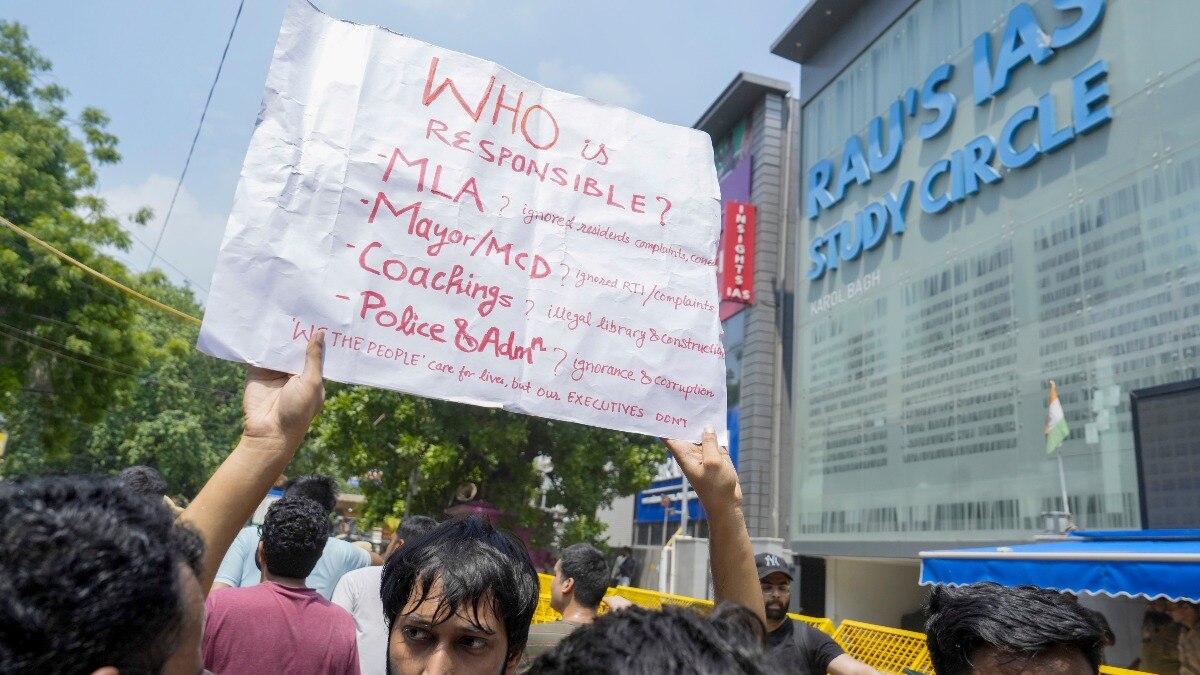 WHO is
RESPONSIBLE?
-MLA ? ignored residents complaints,
-Mayor/MCD ? ignored RTI/complaints
-Coachings ? illegal library & construction
-Police & Admⁿ ? ignorance & corruption
'WE THE PEOPLE' care for lives, but our EXECUTIVES DON'T
INSIGHTS IAS
RAU'S IAS
STUDY CIRCLE
KAROL BAGH
NY